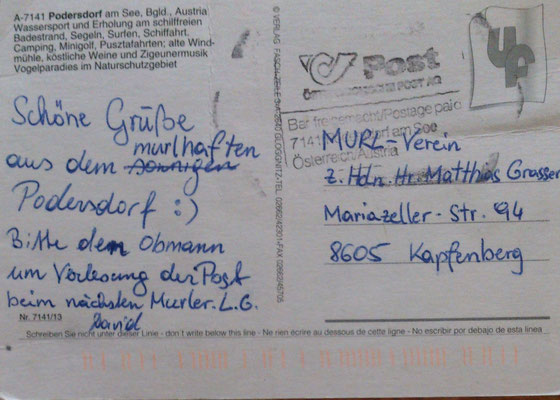 A-7141 Podersdorf am See, Bgld., Austria
Wassersport und Erholung am schilffreien
Badestrand, Segeln, Surfen, Schiffahrt,
Camping, Minigolf, Pusztafahrten; alte Wind-
mühle, köstliche Weine und Zigeunermusik
Vogelparadies im Naturschutzgebiet
Schöne Grüße
murlhaften
aus dem sonnigen
Podersdorf :)
Bitte dem Obmann
um Vorlesung der Post
beim nächsten Murler. L.G.
David
Nr. 7141/13
© VERLAG
Post
ÖSTERREICHISCHE POST AG
Bar freigemacht/Postage paid
7141 Podersdorf am See
Österreich/Austria
MURL-Verein
z. Hdn. Hr. Matthias Grasser
Mariazeller-Str. 94
8605 Kapfenberg
Schreiben Sie nicht unter dieser Linie - don't write below this line - Ne rien écrire au dessous de cette ligne - No escribir por debajo de esta linea